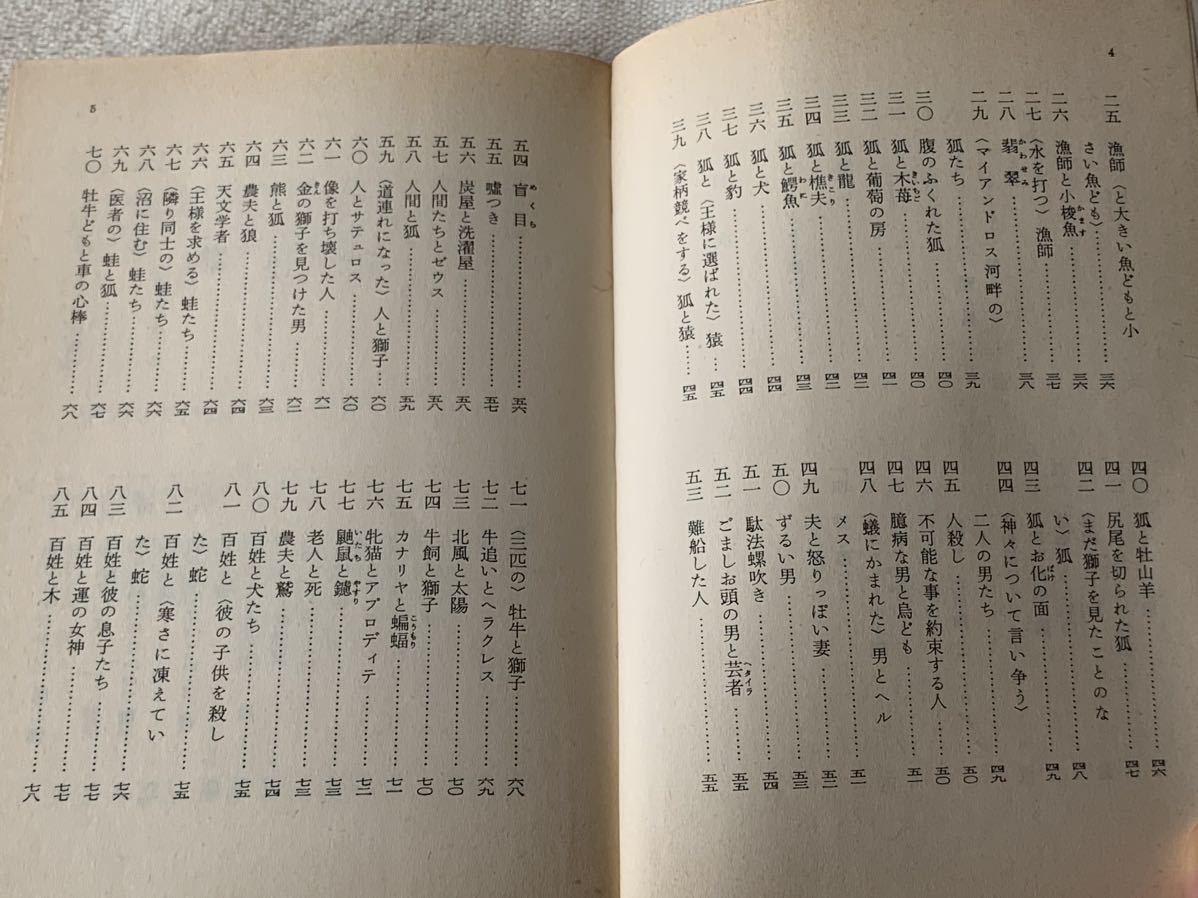 4
二五 漁師〈と大きい魚どもと小
さい魚ども〉……三六
二六 漁師と小梭魚……三六
かます
二七 〈水を打つ〉漁師……三七
二八 翡翠……三八
かわせみ
二九 〈マイアンドロス河畔の〉
狐たち……三九
三〇 腹のふくれた狐……四〇
三一 狐と木苺……四〇
きいちご
三二 狐と葡萄の房……四一
三三 狐と龍……四二
三四 狐と樵夫……四二
きこり
三五 狐と鰐魚……四三
わに
三六 狐と犬……四四
三七 狐と豹……四四
三八 狐と〈王様に選ばれた〉猿……四五
三九 〈家柄競べをする〉狐と猿……四五
四〇 狐と牡山羊……四六
四一 尻尾を切られた狐……四七
四二 〈まだ獅子を見たことのな
い〉狐……四八
四三 狐とお化の面……四九
ばけ
四四 〈神々について言い争う〉
二人の男たち……四九
四五 人殺し……五〇
四六 不可能な事を約束する人……五〇
四七 臆病な男と烏ども……五一
四八 〈蟻にかまれた〉男とヘル
メス……五一
四九 夫と怒りっぽい妻……五二
五〇 ずるい男……五三
五一 駄法螺吹き……五四
五二 ごましお頭の男と芸者……五五
ヘタイラ
五三 難船した人……五五
5
五四 盲目……五六
めくら
五五 嘘つき……五七
五六 炭屋と洗濯屋……五八
五七 人間たちとゼウス……五八
五八 人間と狐……五九
五九 〈道連れになった〉人と獅子……六〇
六〇 人とサテュロス……六〇
六一 像を打ち壊した人……六一
六二 金の獅子を見つけた男……六二
きん
六三 熊と狐……六三
六四 農夫と狼……六四
六五 天文学者……六四
六六 〈王様を求める〉蛙たち……六五
六七 〈隣り同士の〉蛙たち……六六
六八 〈沼に住む〉蛙たち……六六
六九 〈医者の〉蛙と狐……六七
七〇 牡牛どもと車の心棒……六八
七一 〈三匹の〉牡牛と獅子……六八
七二 牛追いとヘラクレス……六九
七三 北風と太陽……七〇
七四 牛飼と獅子……七〇
七五 カナリヤと蝙蝠……七一
こうもり
七六 牝猫とアプロディテ……七二
七七 鼬鼠と鑢……七三
いたち やすり
七八 老人と死……七三
七九 農夫と鷲……七四
八〇 百姓と犬たち……七五
八一 百姓と〈彼の子供を殺し
た〉蛇……七五
八二 百姓と〈寒さに凍えてい
た〉蛇……七六
八三 百姓と彼の息子たち……七七
八四 百姓と運の女神……七七
八五 百姓と木……七八